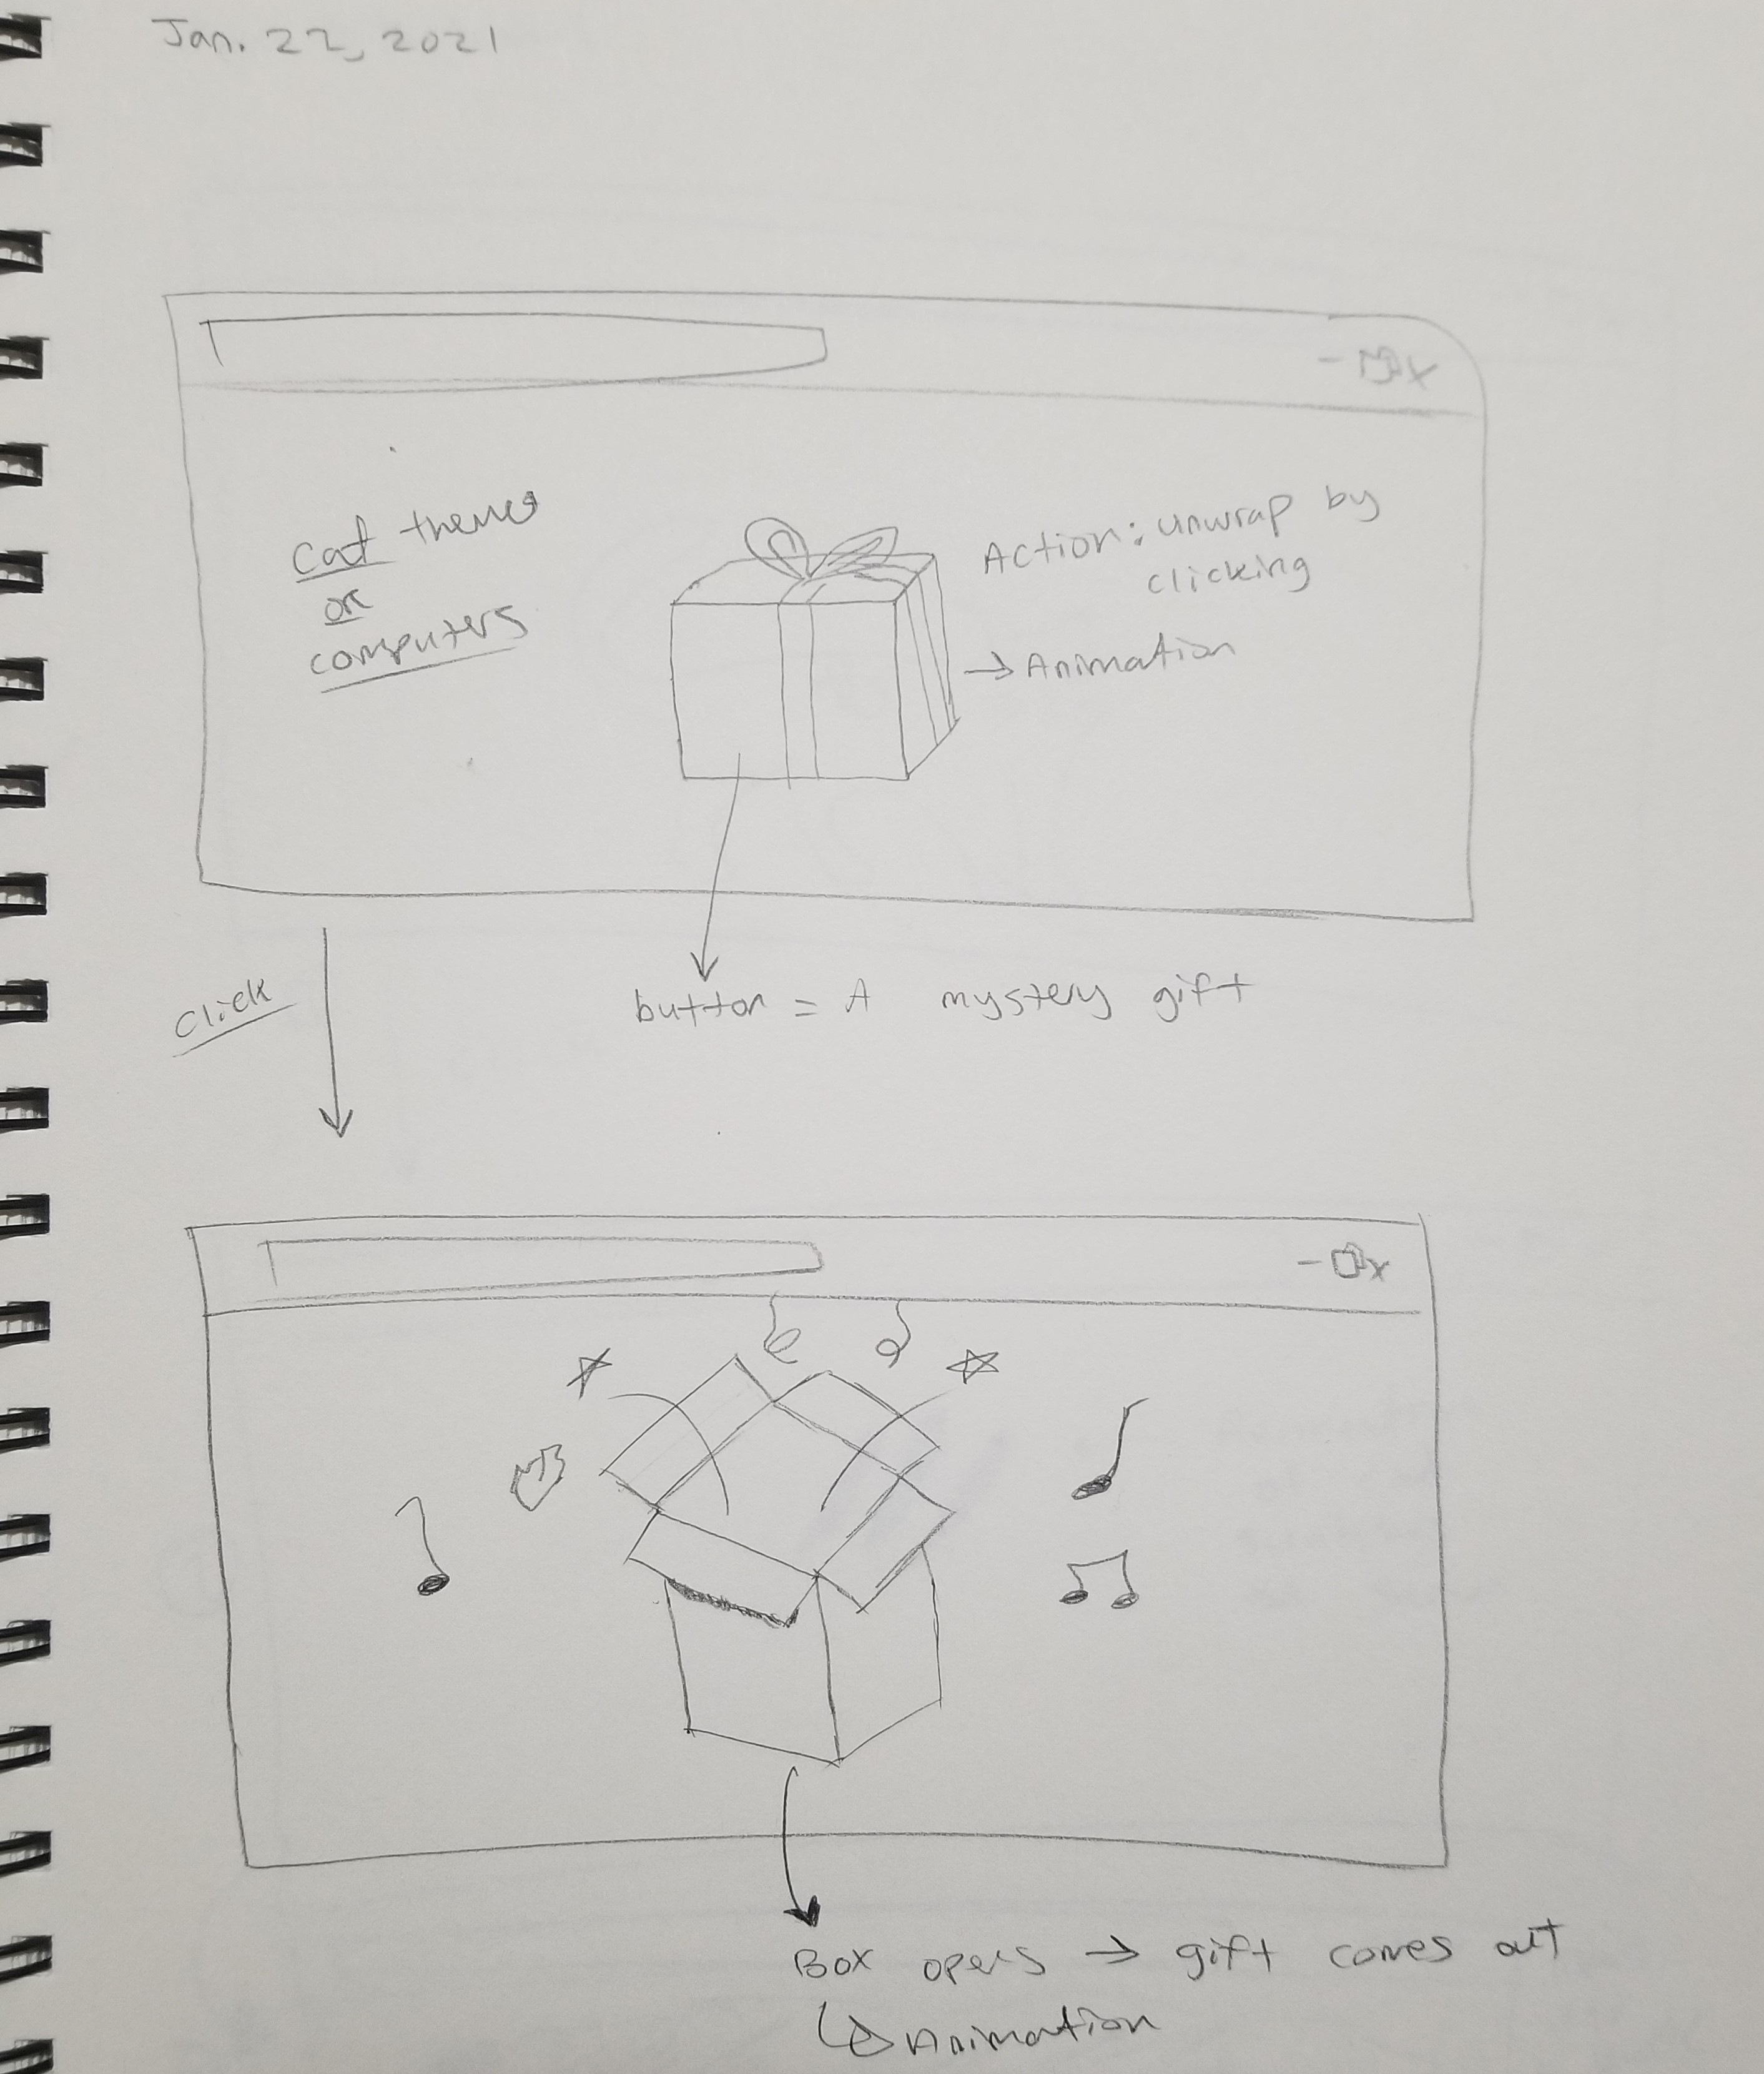 Jan. 22, 2021
Cat themes
or
computers
Action: unwrap by
clicking
→ Animation
button = A mystery gift
click
Box opens → gift comes out
↳ Animation